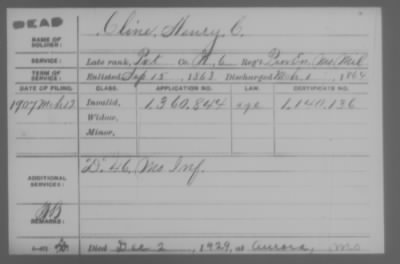 DEAD
NAME OF SOLDIER: Cline, Henry C.
SERVICE: Late rank, Pvt Co. H, 6 Reg't Prov. En. Mo. Mil.
TERM OF SERVICE: Enlisted Sep 15, 1863 Discharged Mch 1, 1864
DATE OF FILING. CLASS. APPLICATION NO. LAW. CERTIFICATE NO.
1907 Mch 13 Invalid, 1,360,844 age 1,140,136
Widow,
Minor,
ADDITIONAL SERVICES: D. 46, Mo Inf.
REMARKS:
Died Dec 2, 1929, at Aurora, Mo